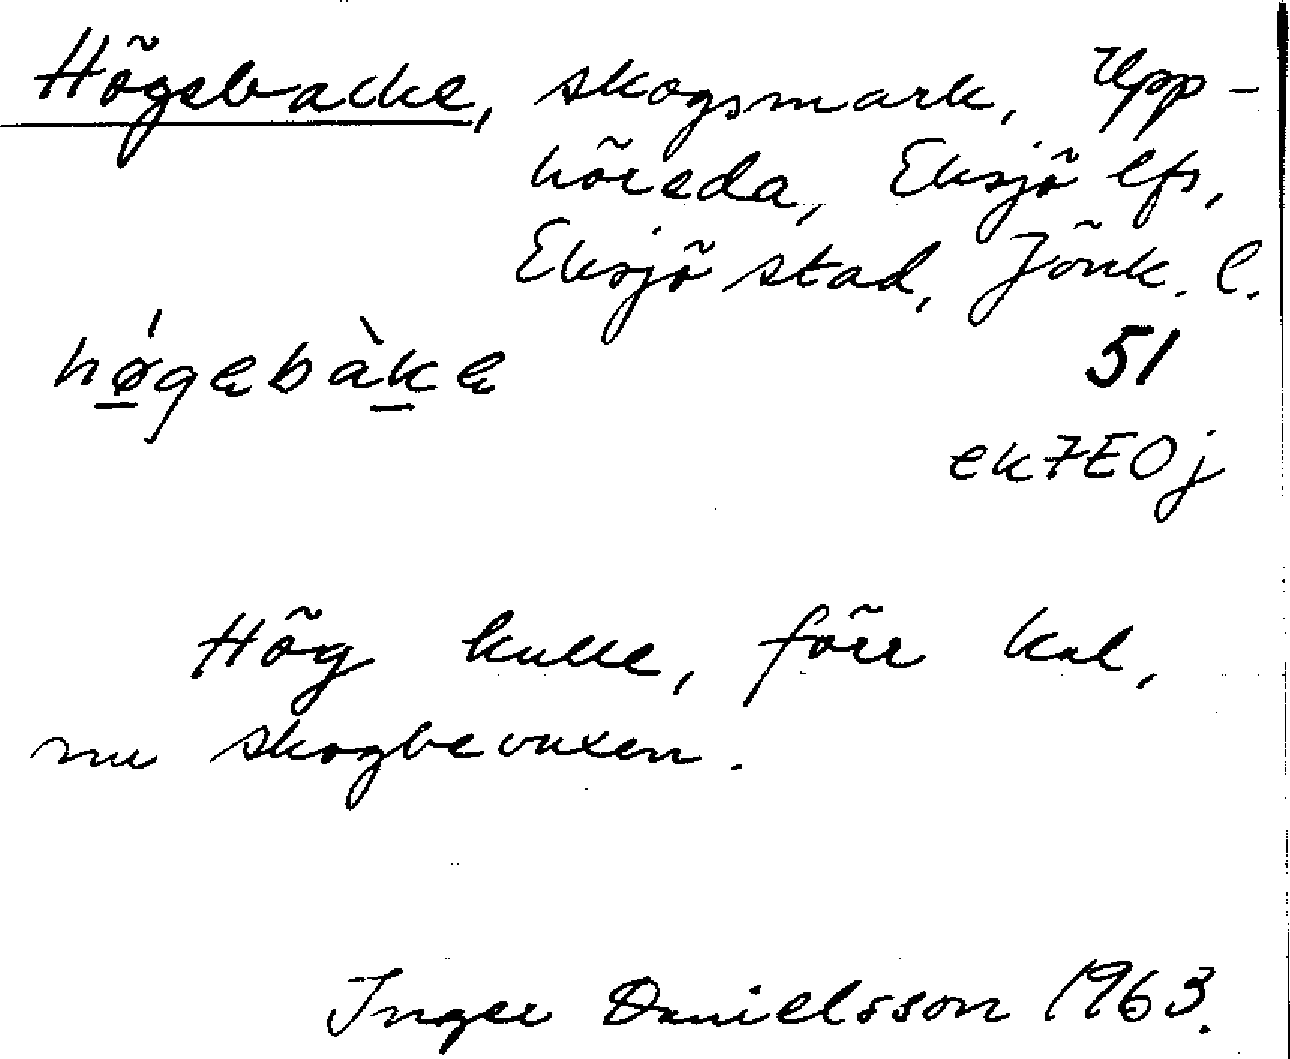 Högebacke, skogsmark, Upp-
höreda, Eksjö lfs,
Eksjö stad, Jönk. l.
hǿ̱gebàḵe 51
ek7E0j
Hög kulle, förr kal,
nu skogbevuxen.
Inger Danielsson 1963.